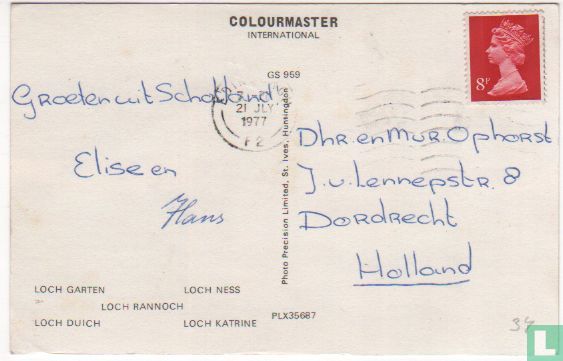 COLOURMASTER
INTERNATIONAL
GS 959
8P
21 JLY
1977
F2
Groeten uit Schotland
Elise en
Hans
Dhr. en Mvr. Ophorst
J. v. Lennepstr. 8
Dordrecht
Holland
Photo Precision Limited, St. Ives, Huntingdon
LOCH GARTEN LOCH NESS
LOCH RANNOCH
LOCH DUICH LOCH KATRINE
PLX35687
34